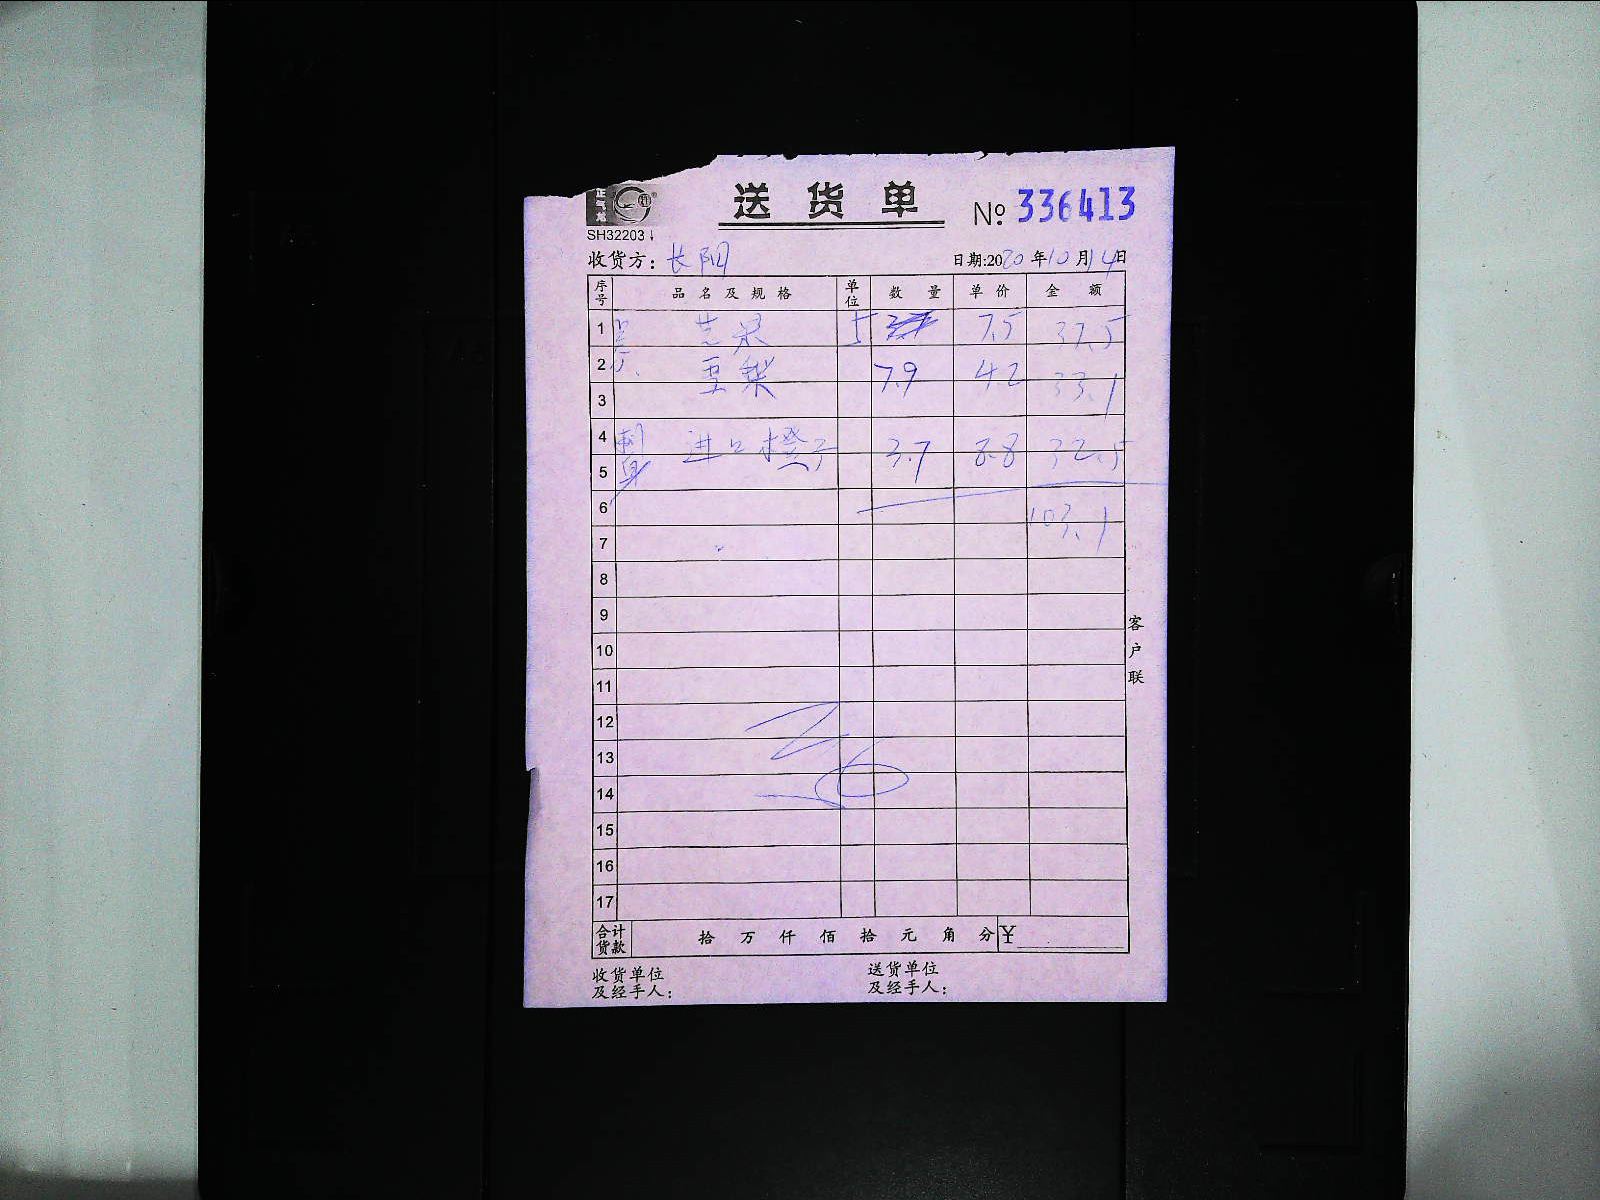 送货单 № 336413
SH32203
收货方：长阳 日期:2020年10月14日
序号 品名及规格 单位 数量 单价 金额
1 芒果 5 7.5 37.5
2 豆梨 7.9 4.2 33.1
3
4 刺身 进口橙子 3.7 8.8 32.5
5
6 103.1
7
8
9
10
11
12
13
14
15
16
17
合计货款 拾 万 仟 佰 拾 元 角 分 ¥
收货单位及经手人： 送货单位及经手人：
客户联